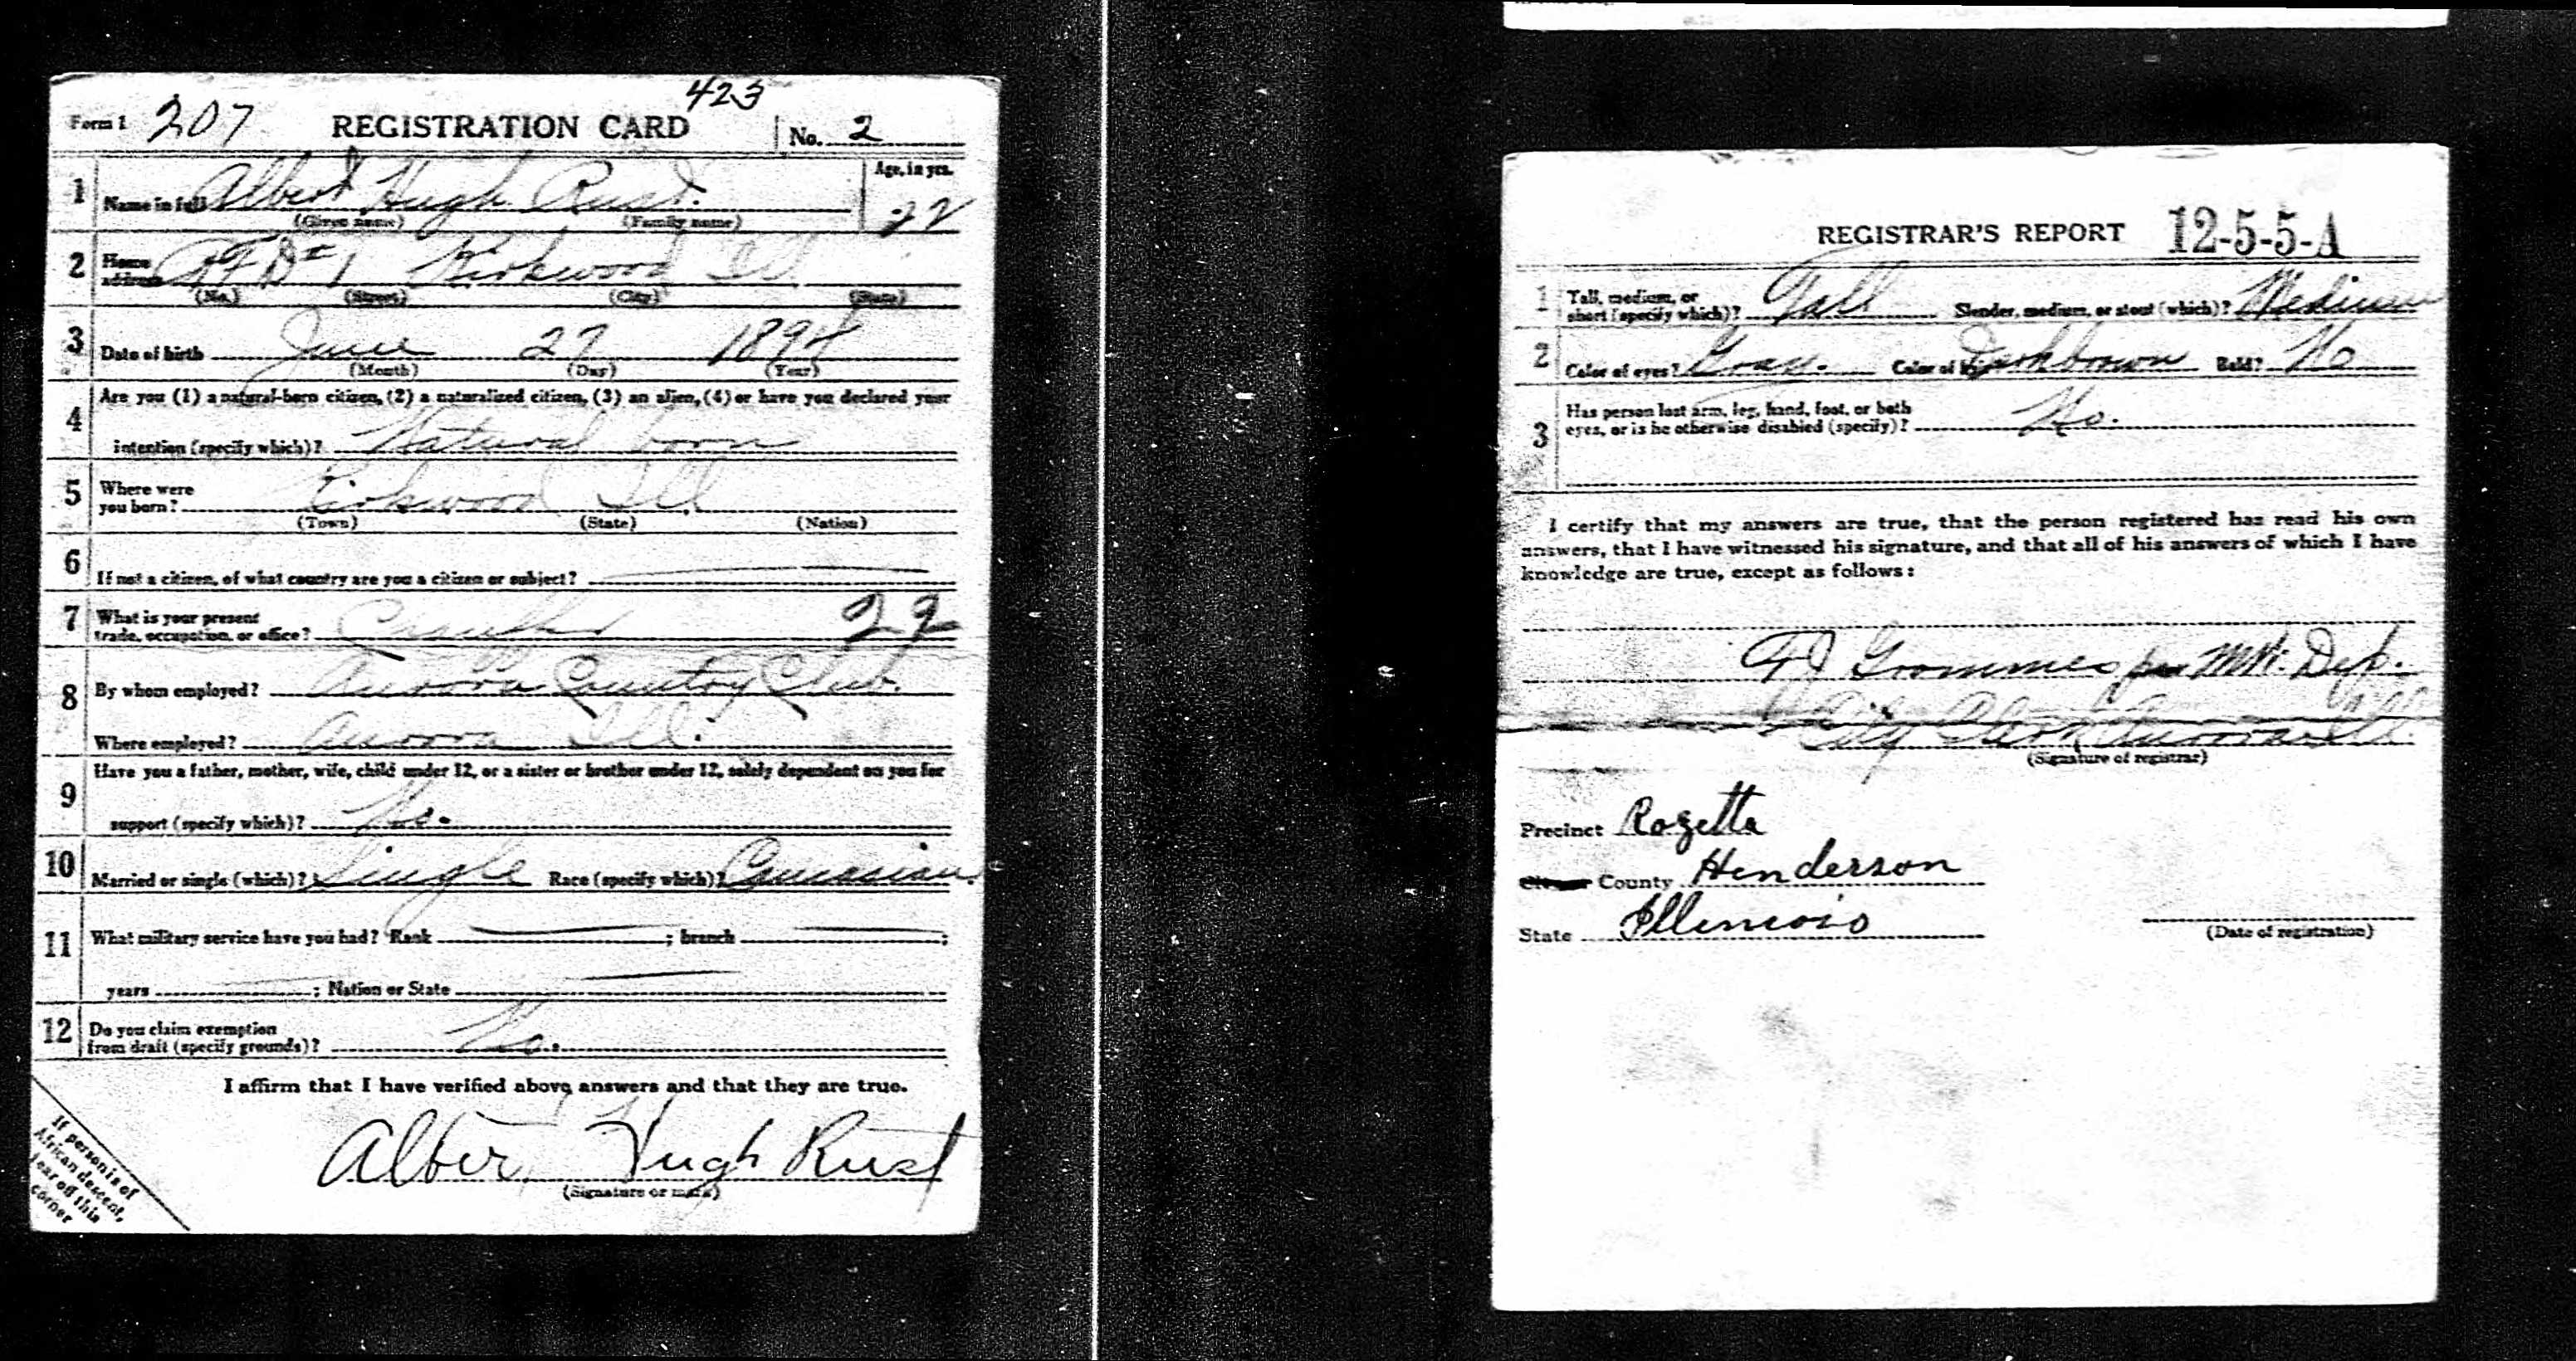 423
Form 1 207 REGISTRATION CARD No. 2
1 Name in full Albert Hugh Rust. Age, in yrs. 22
(Given name) (Family name)
2 Home address RFD #1 Kirkwood Ill
(No.) (Street) (City) (State)
3 Date of birth June 27 1894
(Month) (Day) (Year)
4 Are you (1) a natural-born citizen, (2) a naturalized citizen, (3) an alien, (4) or have you declared your
intention (specify which)? Natural born
5 Where were you born? Kirkwood Ill
(Town) (State) (Nation)
6 If not a citizen, of what country are you a citizen or subject?
7 What is your present trade, occupation, or office? 22
8 By whom employed? Aurora Country Club.
Where employed? Aurora Ill.
9 Have you a father, mother, wife, child under 12, or a sister or brother under 12, solely dependent on you for
support (specify which)? No.
10 Married or single (which)? Single Race (specify which)? Caucasian.
11 What military service have you had? Rank ; branch ;
years ; Nation or State
12 Do you claim exemption from draft (specify grounds)? No.
I affirm that I have verified above answers and that they are true.
Albert Hugh Rust
(Signature or mark)
If person is of
African descent,
tear off this
corner
REGISTRAR'S REPORT 12-5-5-A
1 Tall, medium, or short (specify which)? Tall Slender, medium, or stout (which)? Medium
2 Color of eyes? Gray. Color of hair? Dark brown Bald? No
3 Has person lost arm, leg, hand, foot, or both eyes, or is he otherwise disabled (specify)? No.
I certify that my answers are true, that the person registered has read his own
answers, that I have witnessed his signature, and that all of his answers of which I have
knowledge are true, except as follows:
Grommes per Dep.
City Clerk Aurora Ill.
(Signature of registrar)
Precinct Rozetta
County Henderson
State Illinois
(Date of registration)